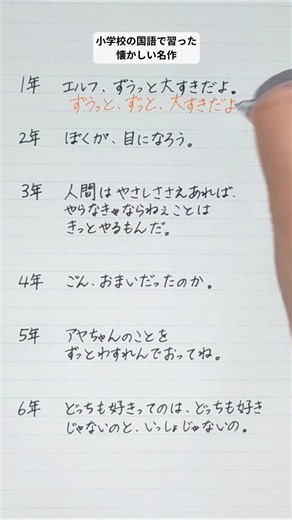 小学校の国語で習った
懐かしい名作
1年 エルフ、ずうっと大すきだよ。
ずうっと、ずっと、大すきだよ
2年 ぼくが、目になろう。
3年 人間はやさしささえあれば、
やらなきゃならねぇことは
きっとやるもんだ。
4年 ごん、おまいだったのか。
5年 アヤちゃんのことを
ずっとわすれんでおってね。
6年 どっちも好きってのは、どっちも好き
じゃないのと、いっしょじゃないの。